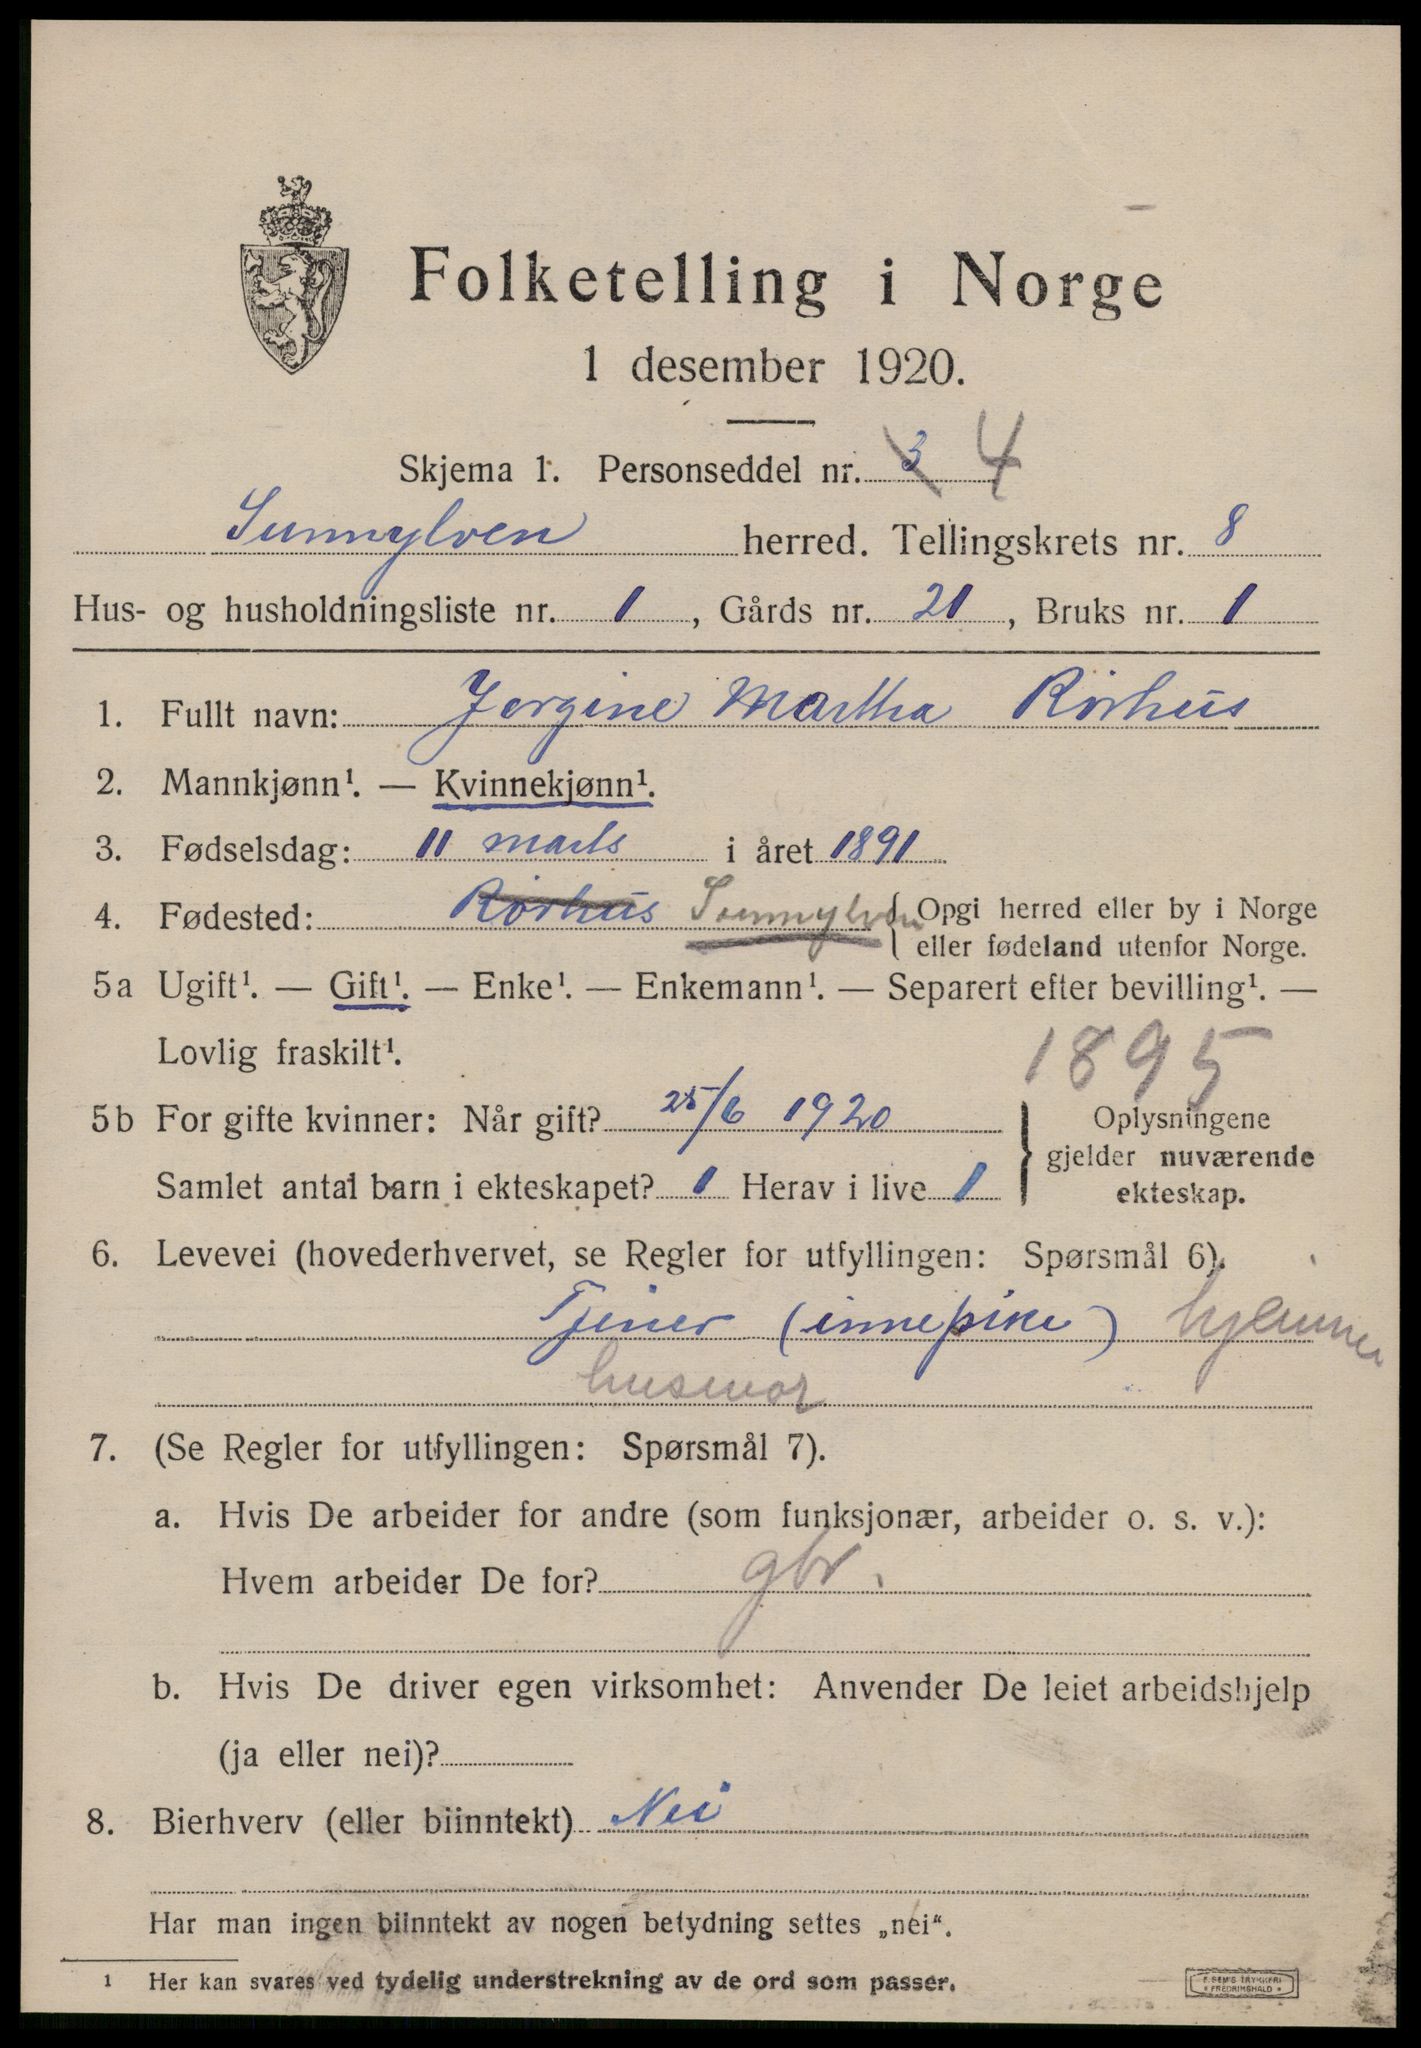 Folketelling i Norge
1 desember 1920.
Skjema 1. Personseddel nr. 3 4
Sunnylven herred. Tellingskrets nr. 8
Hus- og husholdningsliste nr. 1, Gårds nr. 21, Bruks nr. 1
1. Fullt navn: Jorgine Martha Rörhus
2. Mannkjønn¹. — Kvinnekjønn¹.
3. Fødselsdag: 11 marts i året 1891
4. Fødested: Rörhus Sunnylven { Opgi herred eller by i Norge
eller fødeland utenfor Norge.
5a Ugift¹. — Gift¹. — Enke¹. — Enkemann¹. — Separert efter bevilling¹. —
Lovlig fraskilt¹.
1895
5b For gifte kvinner: Når gift? 25/6 1920
Samlet antal barn i ekteskapet? 1 Herav i live 1
Oplysningene
gjelder nuværende
ekteskap.
6. Levevei (hovederhvervet, se Regler for utfyllingen: Spørsmål 6).
Tjener (innepike) hjemme
husmor
7. (Se Regler for utfyllingen: Spørsmål 7).
a. Hvis De arbeider for andre (som funksjonær, arbeider o. s. v.):
Hvem arbeider De for? gbr.
b. Hvis De driver egen virksomhet: Anvender De leiet arbeidshjelp
(ja eller nei)?
8. Bierhverv (eller biinntekt) Nei
Har man ingen biinntekt av nogen betydning settes „nei“.
1 Her kan svares ved tydelig understrekning av de ord som passer.
E. SEM'S TRYKKERI
* FREDRIKSHALD *